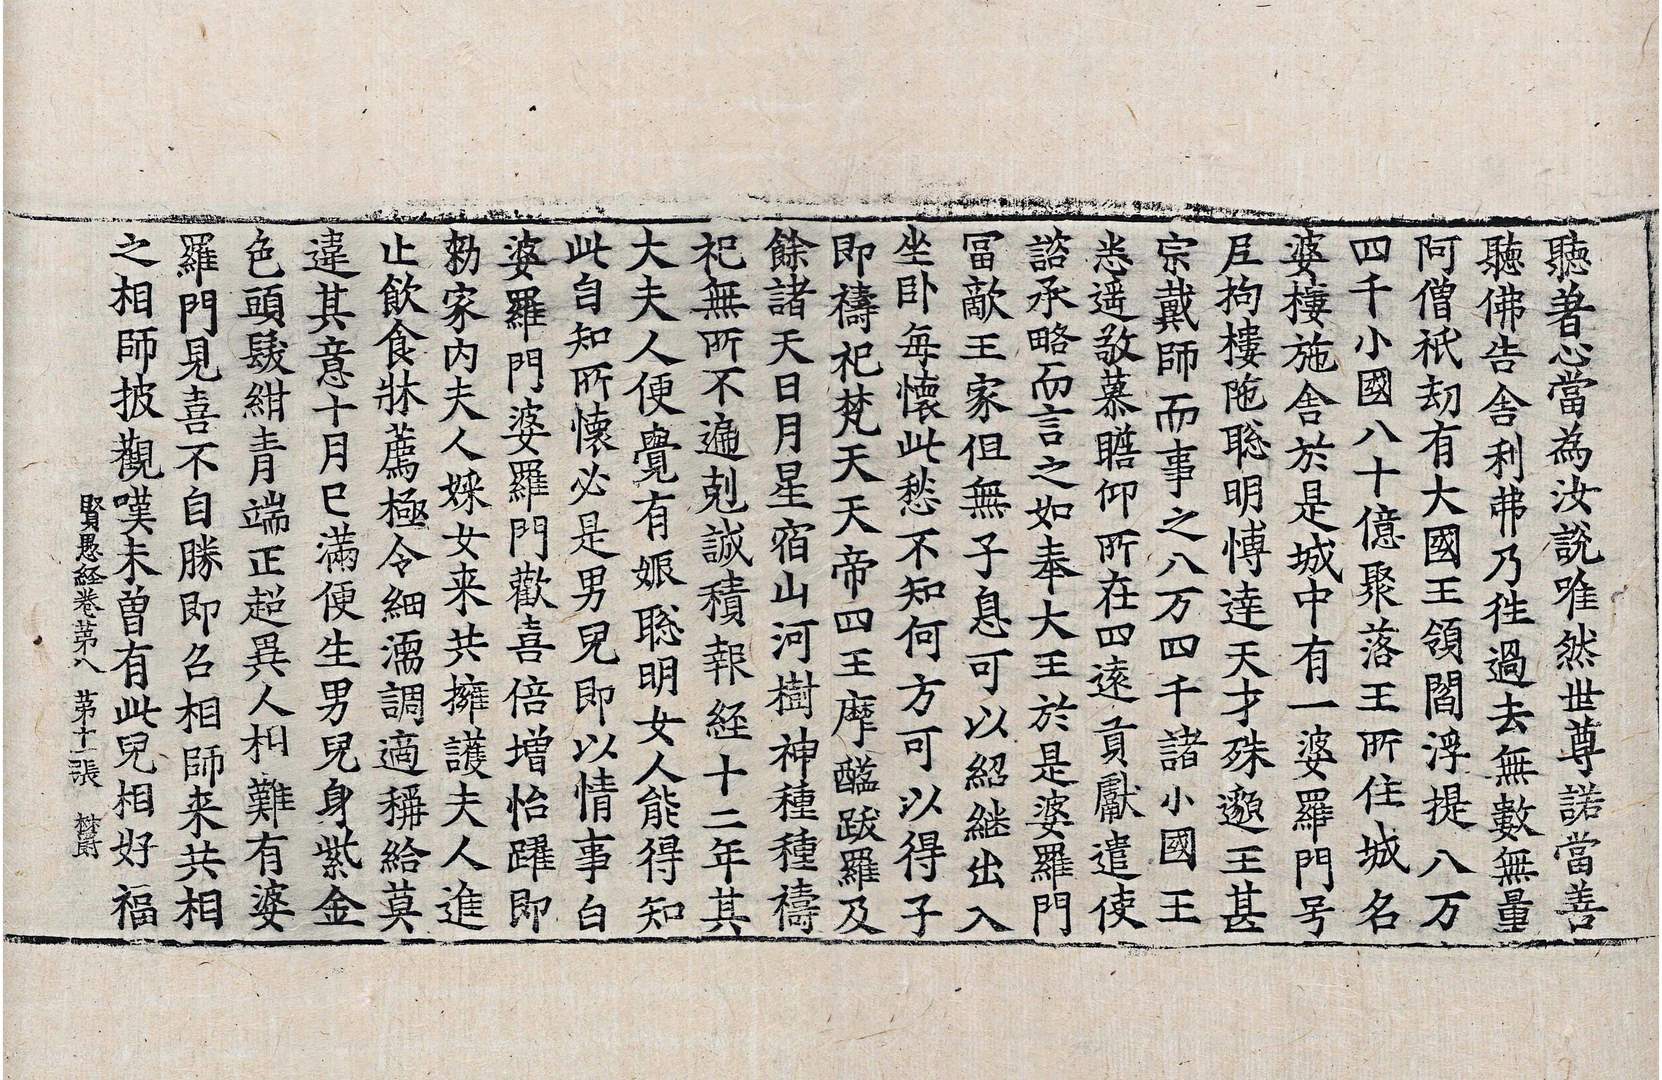 聽著心當為汝說唯然世尊諾當善
聽佛告舍利弗乃徃過去無數無量
阿僧祇劫有大國王領閻浮提八万
四千小國八十億聚落王所住城名
婆樓施舍於是城中有一婆羅門号
尼拘樓陁聡明愽達天才殊邈王甚
宗戴師而事之八万四千諸小國王
悉遥敬慕瞻仰所在四遠貢獻遣使
諮承略而言之如奉大王於是婆羅門
冨敵王家但無子息可以紹継出入
坐卧每懷此愁不知何方可以得子
即禱祀梵天天帝四王摩醯跋羅及
餘諸天日月星宿山河樹神種種禱
祀無所不遍剋誠積報経十二年其
大夫人便覺有娠聡明女人能得知
此自知所懷必是男兒即以情事白
婆羅門婆羅門歡喜倍增怡躍即
勑家內夫人婇女来共擁護夫人進
止飲食牀薦極令細濡調適稱給莫
違其意十月已滿便生男兒身紫金
色頭髮紺青端正超異人相難有婆
羅門見喜不自勝即召相師来共相
之相師披觀嘆未曾有此兒相好福
賢愚経卷第八 第十一張